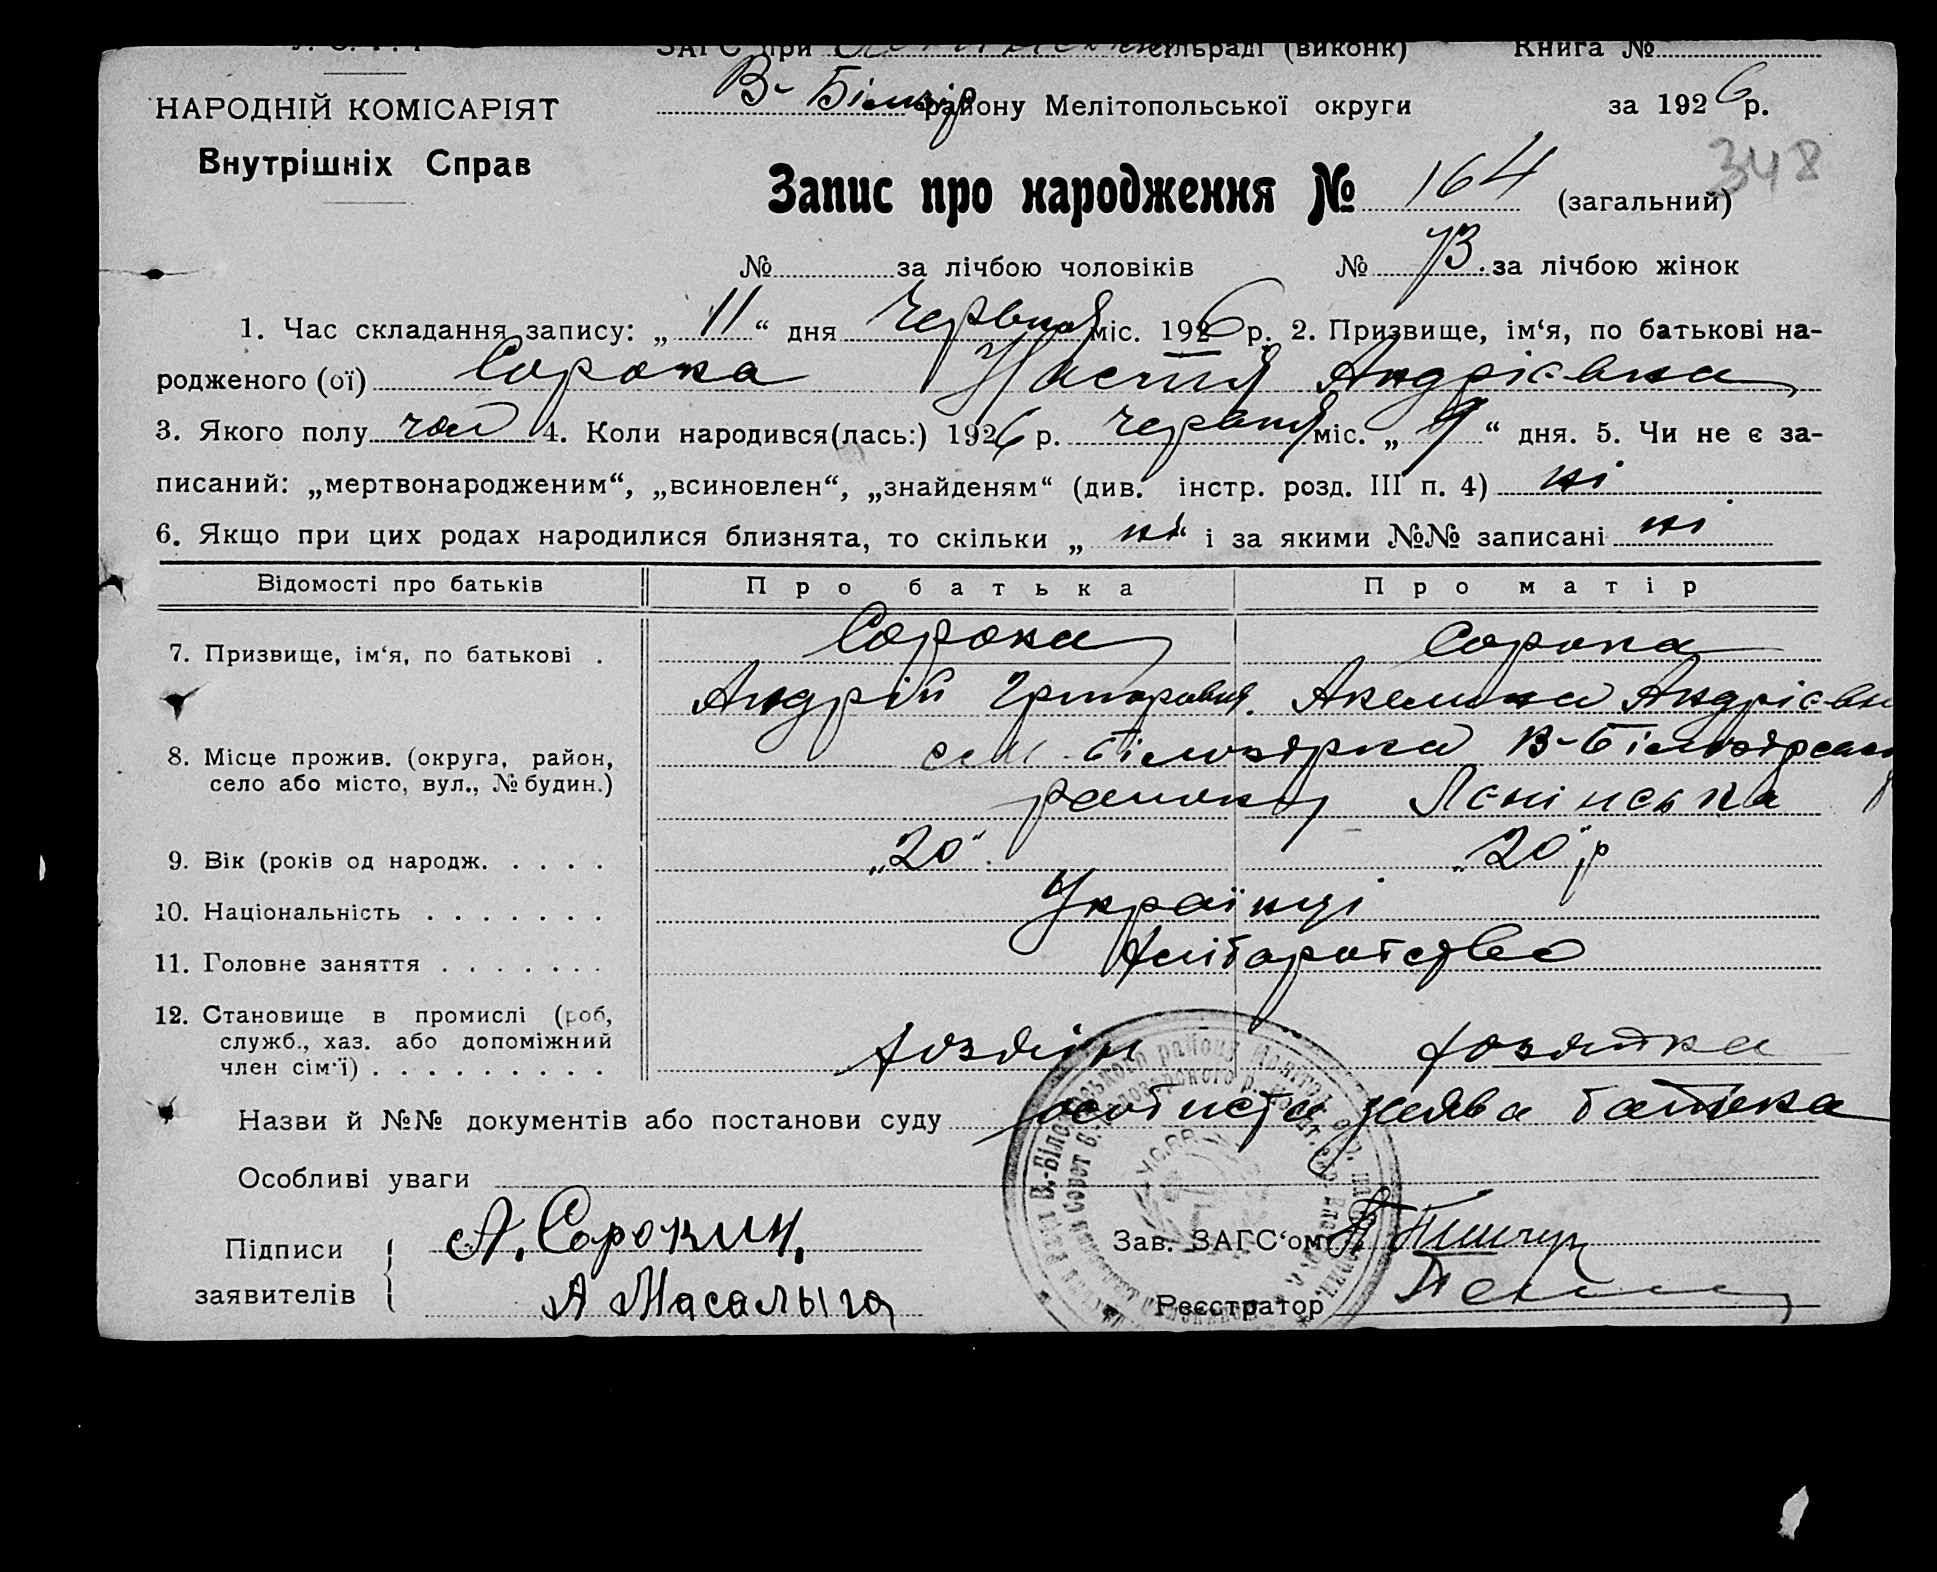 ЗАГС при сільраді (виконк) Книга №
НАРОДНІЙ КОМІСАРІЯТ В-Білозір району Мелітопольської округи за 1926 р.
Внутрішніх Справ
348
Запис про народження № 164 (загальний)
№ за лічбою чоловіків № 73. за лічбою жінок
1. Час складання запису: „11“ дня Червня міс. 1926 р. 2. Призвище, ім‘я, по батькові на-
родженого (ої) Сорока Настя Андрієвна
3. Якого полу жен 4. Коли народився(лась:) 1926 р. червня міс. „9“ дня. 5. Чи не є за-
писаний: „мертвонародженим“, „всиновлен“, „знайденям“ (див. інстр. розд. III п. 4) ні
6. Якщо при цих родах народилися близнята, то скільки „ні“ і за якими №№ записані ні
Відомості про батьків Про батька Про матір
7. Призвище, ім‘я, по батькові . Сорока Сорока
Андрій Григоровия. Акелина Андрієвн
8. Місце прожив. (округа, район, село або місто, вул., № будин.) сел Білозірка В-Білозірськ
району Лєнінська
9. Вік (років од народж. . . . . „20“. „20“ р
10. Національність . . . . . . . Українці
11. Головне заняття . . . . . . . хліборобство
12. Становище в промислі (роб,
служб., хаз. або допоміжний
член сім‘ї) . . . . . . . . . хозяїн хозяйка
Назви й №№ документів або постанови суду особиста заява батька
Особливі уваги
Підписи А. Сорокин. Зав. ЗАГС‘ом
заявителів А Масалыга Реєстратор